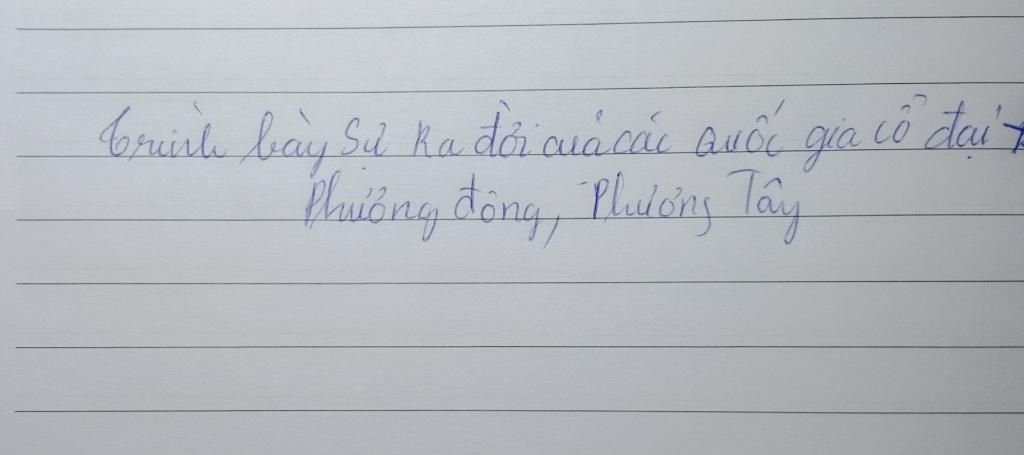 trình bày sự ra đời của các quốc gia cổ đại
Phương đông, Phương Tây